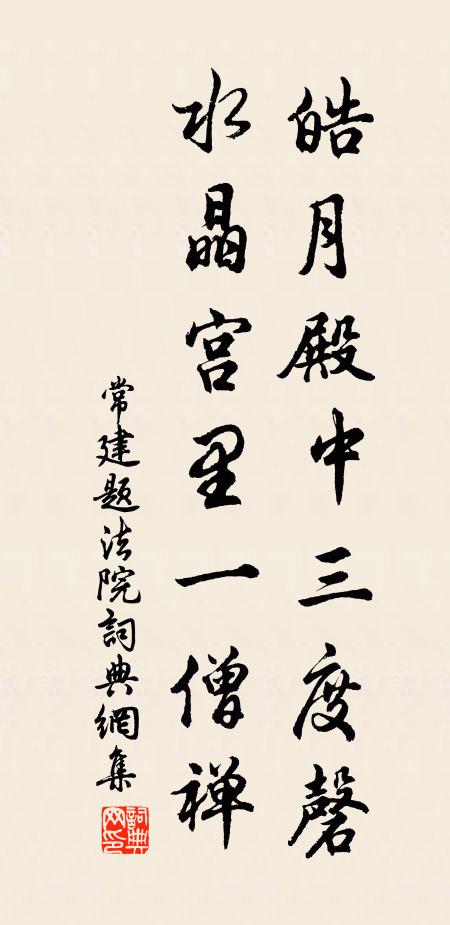 皓月殿中三度磬
水晶宫里一僧禅
常建题法院詞典網集
詞典
网印